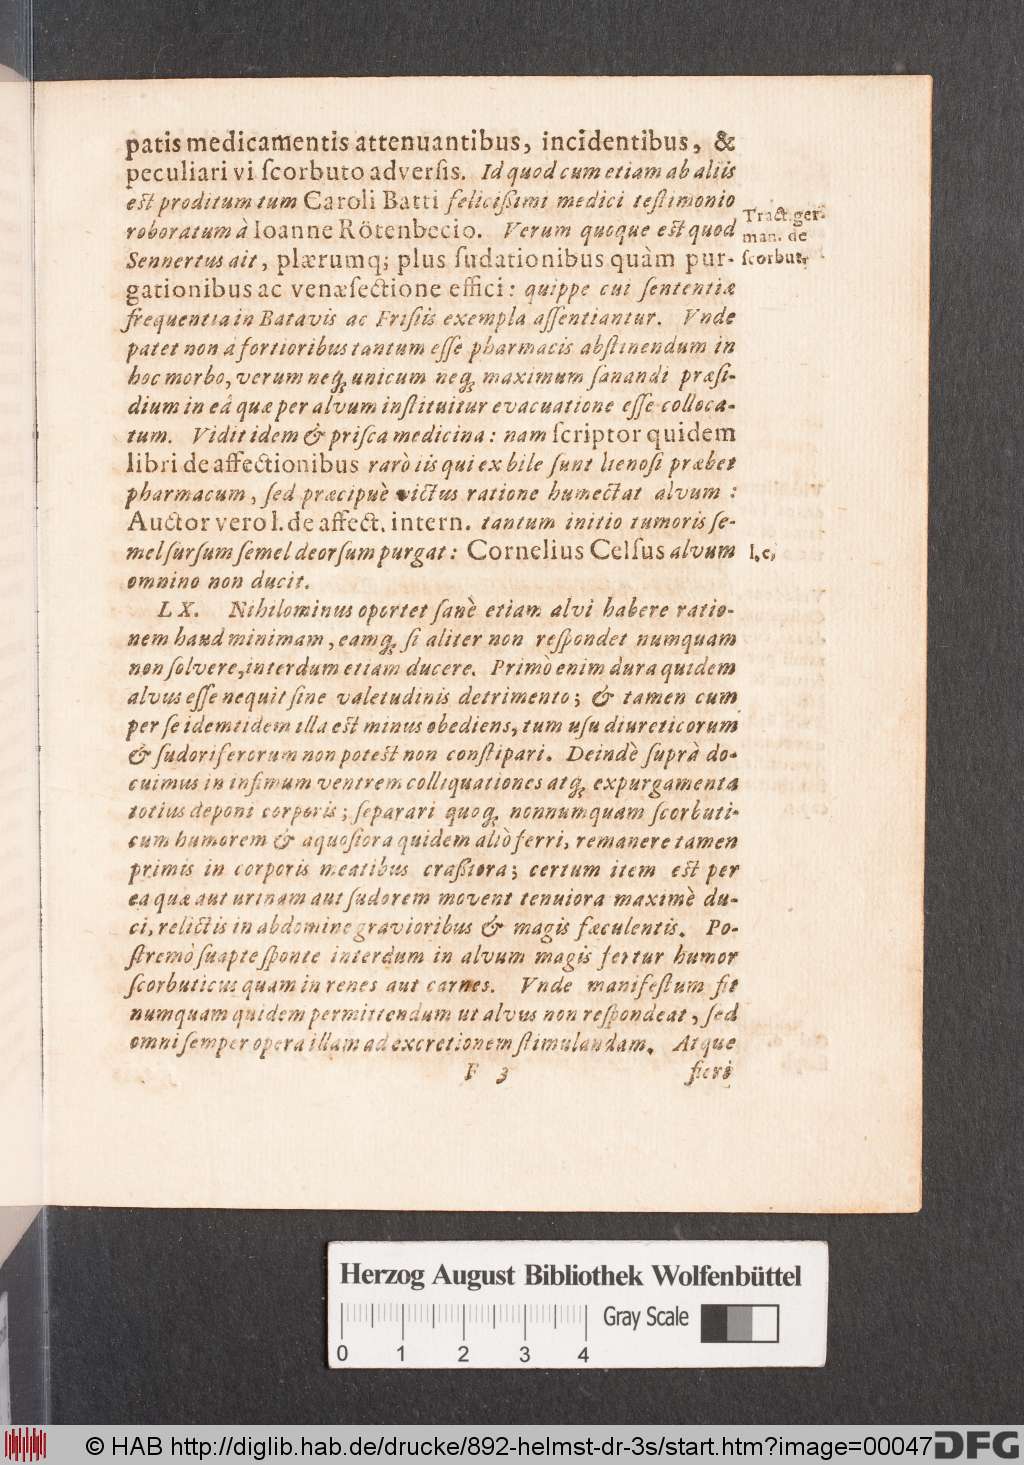 patis medicamentis attenuantibus, incidentibus, &
peculiari vi ſcorbuto adverſis. Id quod cum etiam ab aliis
eſt proditum tum Caroli Batti feliciſſimi medici teſtimonio
roboratum à Ioanne Rötenbecio. Verum quoque eſt quod
Tract. ger-
man. de
ſcorbut.
Sennertus ait, plærumq; plus ſudationibus quàm pur-
gationibus ac venæſectione effici: quippe cui ſententiæ
frequentia in Batavis ac Friſiis exempla aſſentiantur. Vnde
patet non à fortioribus tantum eſſe pharmacis abſtinendum in
hoc morbo, verum neq; unicum neq; maximum ſanandi præſi-
dium in eâ quæ per alvum inſtituitur evacuatione eſſe colloca-
tum. Vidit idem & priſca medicina: nam ſcriptor quidem
libri de affectionibus rarò iis qui ex bile ſunt lienoſi præbet
pharmacum, ſed præcipuè victus ratione humectat alvum:
Auctor vero l. de affect. intern. tantum initio tumoris ſe-
mel ſurſum ſemel deorſum purgat: Cornelius Celſus alvum
l. c,
omnino non ducit.
LX. Nihilominus oportet ſanè etiam alvi habere ratio-
nem haud minimam, eamq; ſi aliter non reſpondet numquam
non ſolvere, interdum etiam ducere. Primò enim dura quidem
alvus eſſe nequit ſine valetudinis detrimento; & tamen cum
per ſe idemtidem illa eſt minus obediens, tum uſu diureticorum
& ſudoriferorum non poteſt non conſtipari. Deindè ſuprà do-
cuimus in infimum ventrem colliquationes atq; expurgamenta
totius deponi corporis; ſeparari quoq; nonnumquam ſcorbuti-
cum humorem & aquoſiora quidem aliò ferri, remanere tamen
primis in corporis meatibus craſſiora; certum item eſt per
ea quæ aut urinam aut ſudorem movent tenuiora maximè du-
ci, relictis in abdomine gravioribus & magis fæculentis. Po-
ſtremò ſuapte ſponte interdum in alvum magis fertur humor
ſcorbuticus quam in renes aut carnes. Vnde manifeſtum fit
numquam quidem permittendum ut alvus non reſpondeat, ſed
omni ſemper opera illam ad excretionem ſtimulandam. Atque
F 3
fieri
Herzog August Bibliothek Wolfenbüttel
0 1 2 3 4
Gray Scale
© HAB http://diglib.hab.de/drucke/892-helmst-dr-3s/start.htm?image=00047
DFG